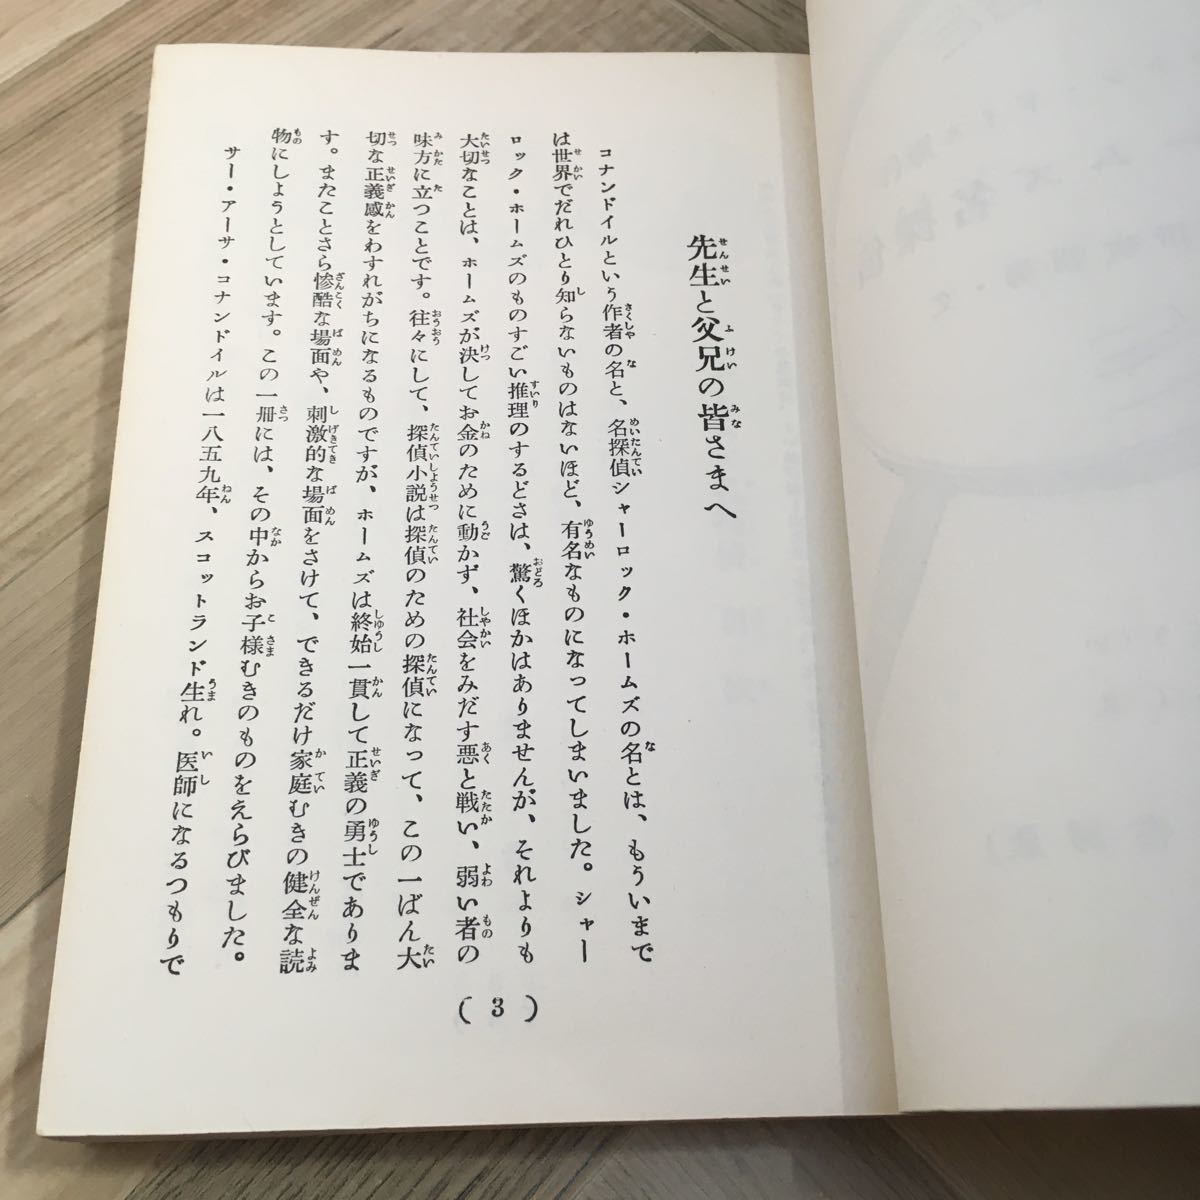 先生と父兄の皆さまへ
コナンドイルという作者の名と、名探偵シャーロック・ホームズの名とは、もういまで
は世界でだれひとり知らないものはないほど、有名なものになってしまいました。シャー
ロック・ホームズのものすごい推理のするどさは、驚くほかはありませんが、それよりも
大切なことは、ホームズが決してお金のために動かず、社会をみだす悪と戦い、弱い者の
味方に立つことです。往々にして、探偵小説は探偵のための探偵になって、この一ばん大
切な正義感をわすれがちになるものですが、ホームズは終始一貫して正義の勇士でありま
す。またことさら惨酷な場面や、刺激的な場面をさけて、できるだけ家庭むきの健全な読
物にしようとしています。この一冊には、その中からお子様むきのものをえらびました。
サー・アーサ・コナンドイルは一八五九年、スコットランド生れ。医師になるつもりで
( 3 )